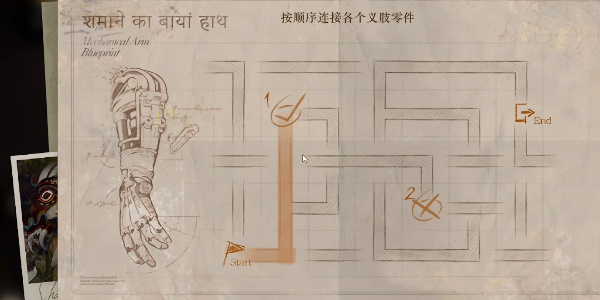 शमाने का बायां हाथ
按顺序连接各个义肢零件
Mechanical Arm
Blueprint
1
End
2
Start